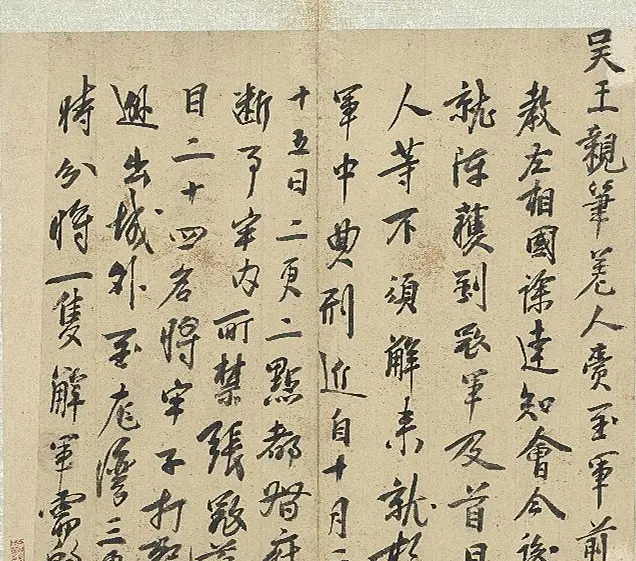 吴王親筆差人賫至軍前
教左相國徐達知會今後
就陣獲到寇軍及首目
人等不須解來就
軍中典刑近自十月二
十五日二更二點都督府
断事牢内所禁張寇首
目二十四名將牢子打
逃出城外至庀灣三
時分將一隻解軍需